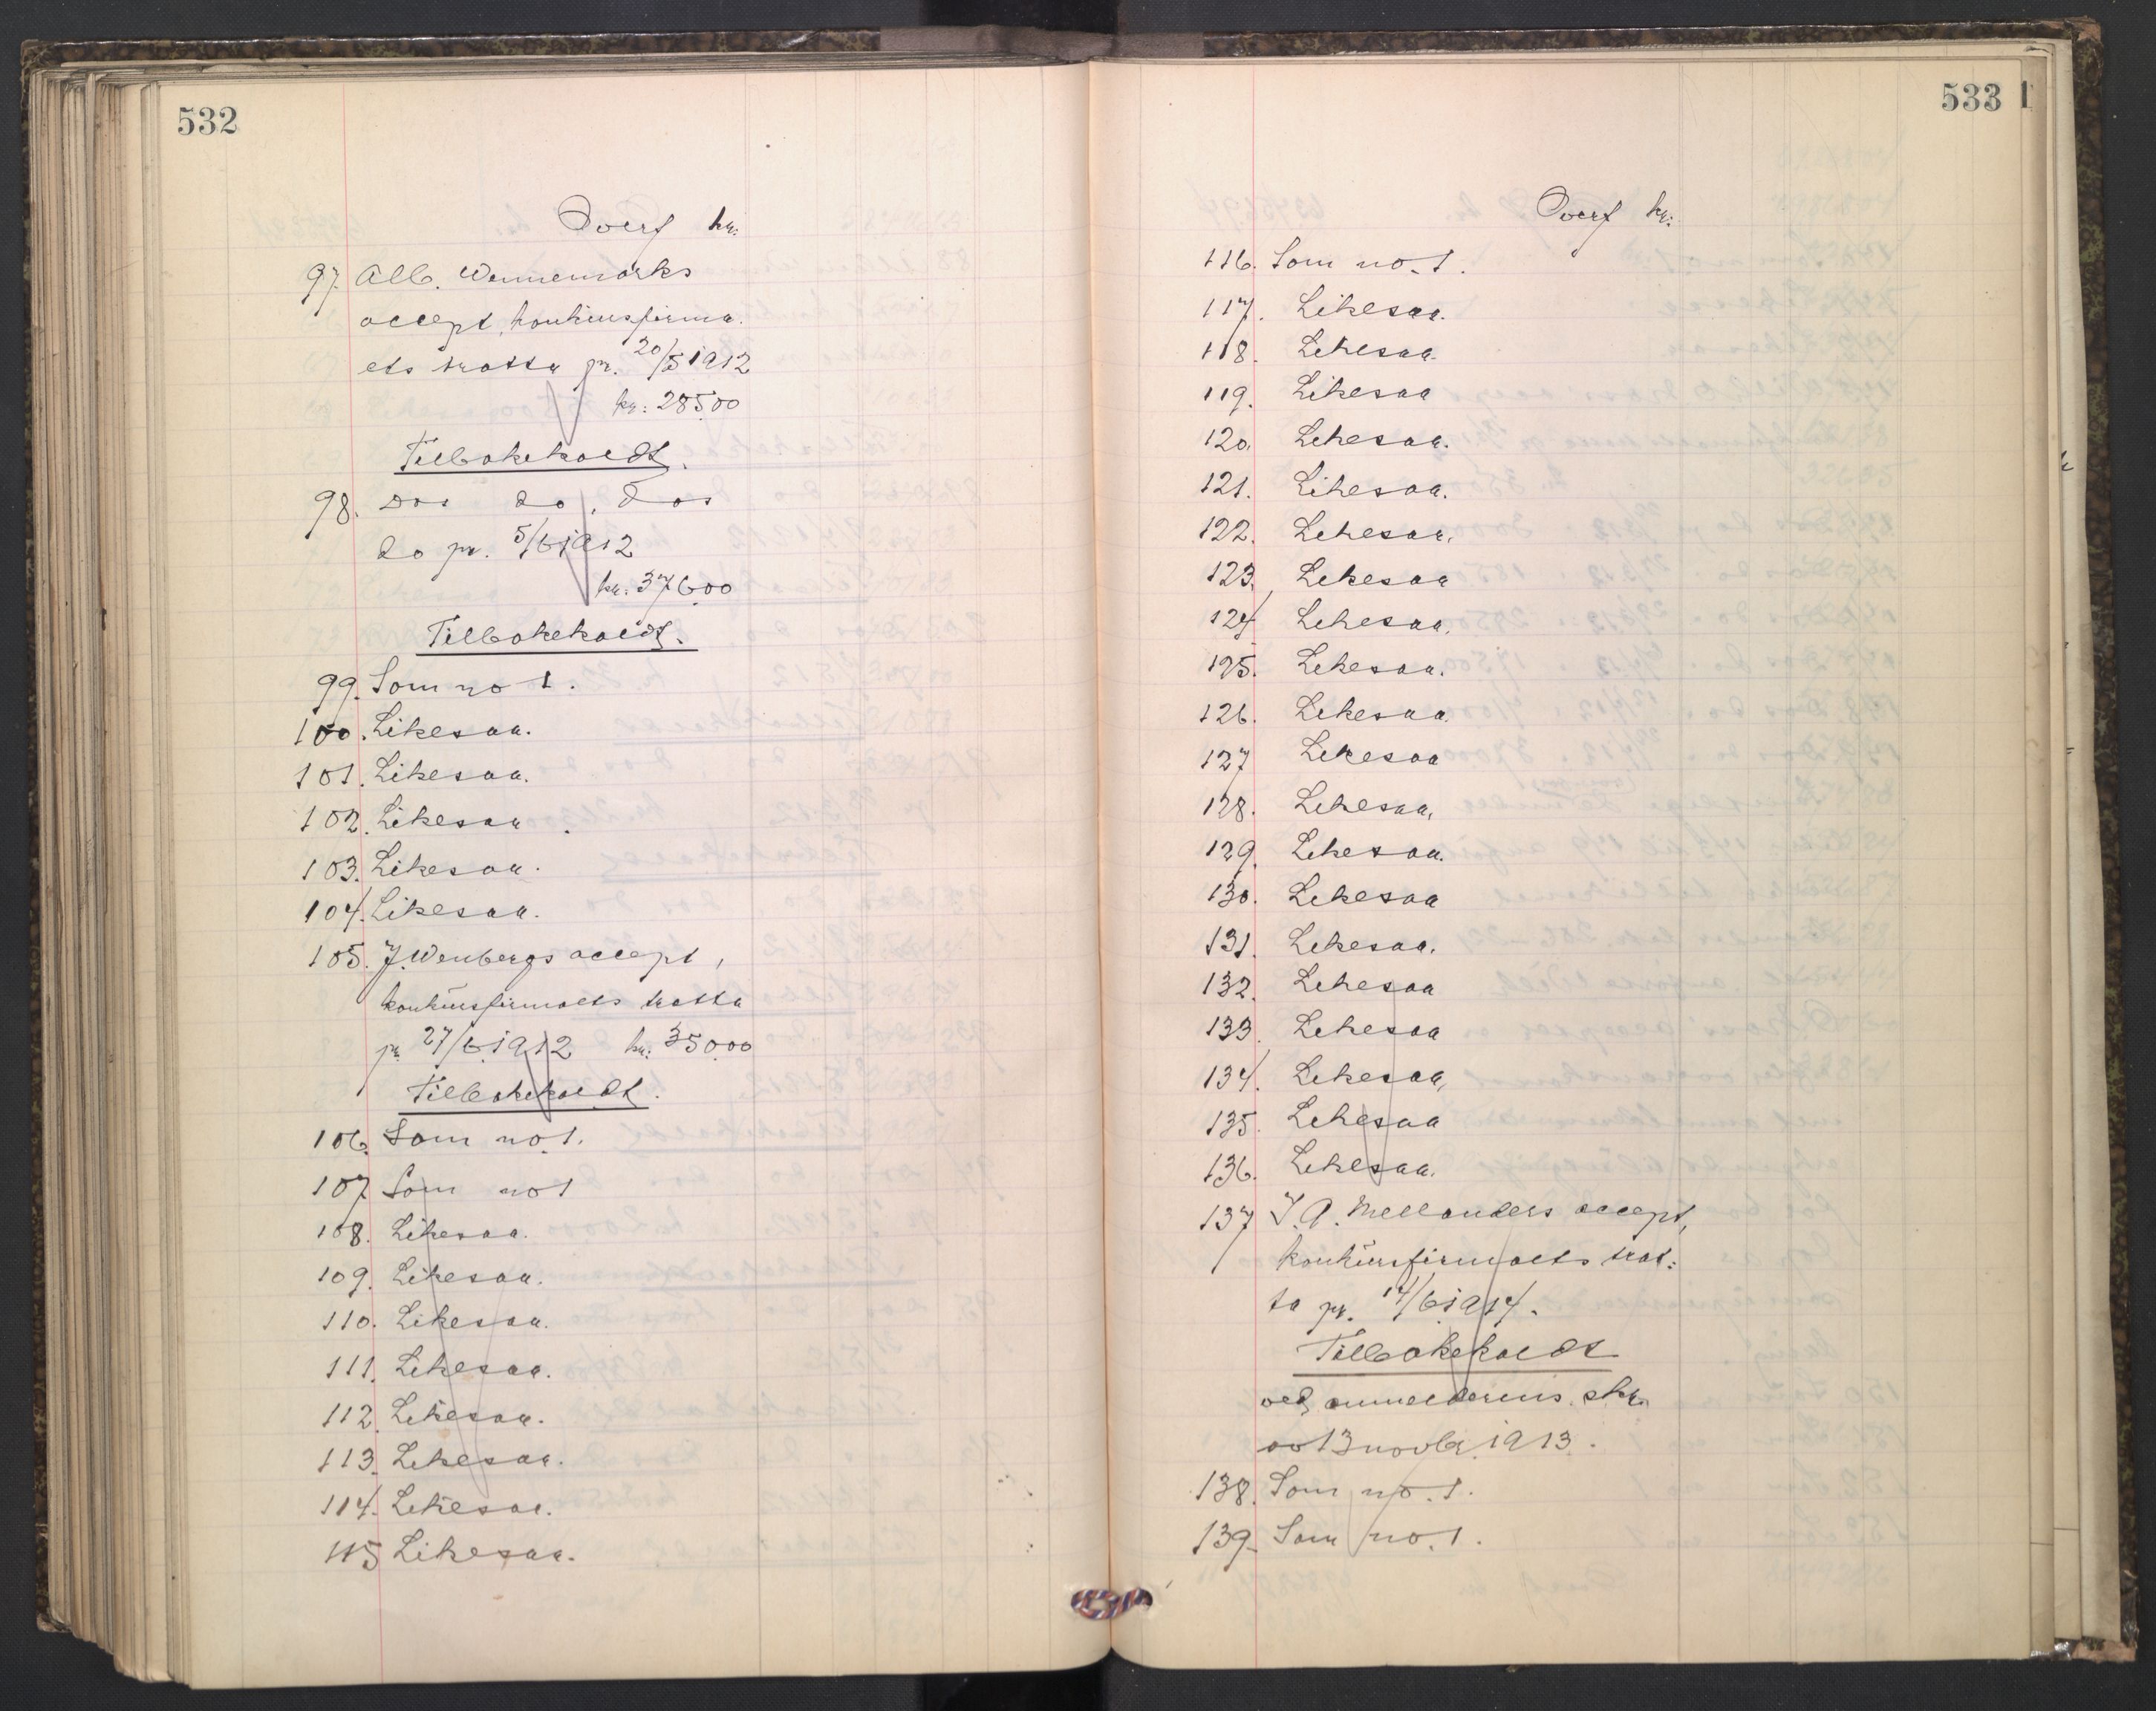 532
Overf kr:
97. Alb. Wennemarks
accept, konkursfirma.
ets tratta pr. 20/5 1912
kr: 285.00
Tilbakekaldt.
98. Dos do, Dos
do pr. 5/6 1912
kr: 376.00
Tilbakekaldt.
99. Som no 1.
100. Likesaa.
101. Likesaa.
102. Likesaa.
103. Likesaa.
104. Likesaa.
105. J. Wenbergs accept,
konkursfirmaets tratta
pr. 27/6 1912 kr: 350.00
Tilbakekaldt.
106. Som no 1.
107 Som no 1
108. Likesaa.
109. Likesaa.
110. Likesaa.
111. Likesaa.
112. Likesaa.
113. Likesaa.
114. Likesaa.
115 Likesaa.
533
Overf kr:
116. Som no. 1.
117. Likesaa.
118. Likesaa.
119. Likesaa
120. Likesaa.
121. Likesaa.
122. Likesaa.
123. Likesaa
124 Likesaa.
125. Likesaa.
126. Likesaa.
127 Likesaa
128. Likesaa.
129. Likesaa.
130. Likesaa
131. Likesaa.
132. Likesaa
133. Likesaa
134. Likesaa,
135. Likesaa
136. Likesaa.
137 J. A. Mellanders accept,
konkursfirmaets trat:
ta pr. 14/6 1914.
Tilbakekaldt
ved anmelderens skr.
av 13 novbr. 1913.
138. Som no. 1.
139. Som no. 1.